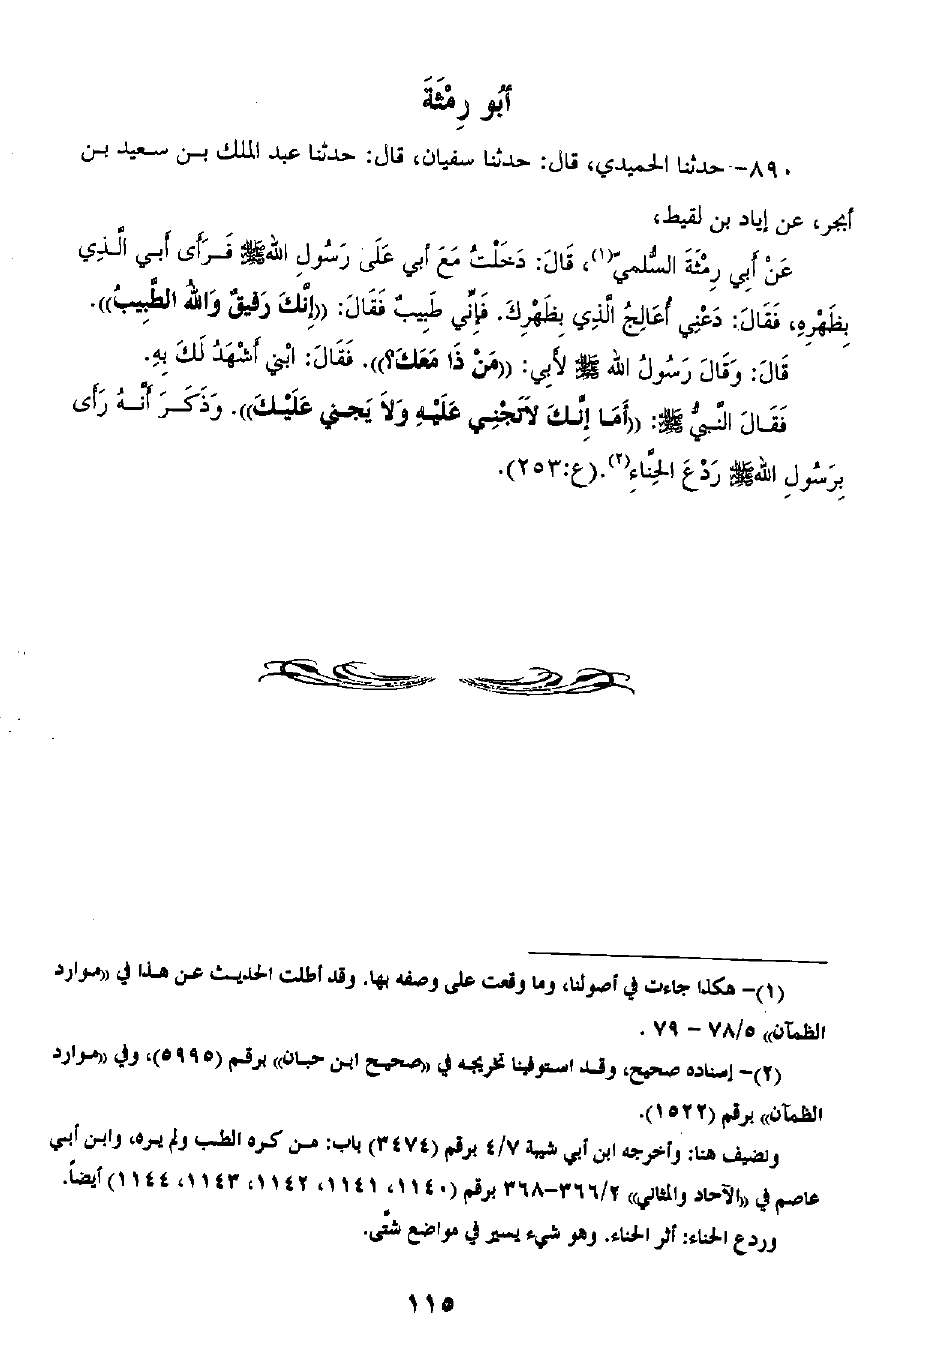 أَبُو رِمْثَةَ
٨٩٠- حدثنا الحميدي، قال: حدثنا سفيان، قال: حدثنا عبد الملك بن سعيد بن
أبجر، عن إياد بن لقيط،
عَنْ أَبِي رِمْثَةَ السُّلميّ(١)، قَالَ: دَخَلْتُ مَعَ أبي عَلَى رَسُولِ اللهﷺ فَرَأى أَبي الَّذِي
بِظَهْرِهِ، فَقَالَ: دَعْنِي أُعَالِجُ الَّذِي بِظَهْرِكَ. فَإِنِّي طَبِيبٌ فَقَالَ: ((إِنَّكَ رَفِيقٌ وَاللهُ الطَّبِيبُ)).
قَالَ: وَقَالَ رَسُولُ الله ﷺ لأَبي: ((مَنْ ذَا مَعَكَ؟)). فَقَالَ: ابْنِي أَشْهَدُ لَكَ بِهِ.
فَقَالَ النَّبيُّ ﷺ: ((أَمَا إِنَّكَ لاَتَجْنِي عَلَيْهِ وَلاَ يَجني عَلَيْكَ)). وَذَكَرَ أَنَّهُ رَأى
بِرَسُولِ اللهﷺ رَدْعَ الحِنَّاءِ(٢).(ع:٢٥٣).
(١)- هكذا جاءت في أصولنا، وما وقعت على وصفه بها. وقد أطلت الحديث عن هذا في ((موارد
الظمآن)) ٧٨/٥ – ٧٩ .
(٢)- إسناده صحيح، وقد استوفينا تخريجه في ((صحيح ابن حبان)) برقم (٥٩٩٥)، وفي ((موارد
الظمآن)) برقم (١٥٢٢).
ونضيف هنا: وأخرجه ابن أبي شيبة ٤/٧ برقم (٣٤٧٤) باب: من كره الطب ولم يره، وابن أبي
عاصم في ((الآحاد والمثاني)) ٣٦٦/٢–٣٦٨ برقم (١١٤٠، ١١٤١، ١١٤٢، ١١٤٣، ١١٤٤) أيضاً.
وردع الحناء: أثر الحناء. وهو شيء يسير في مواضع شتَّى.
١١٥